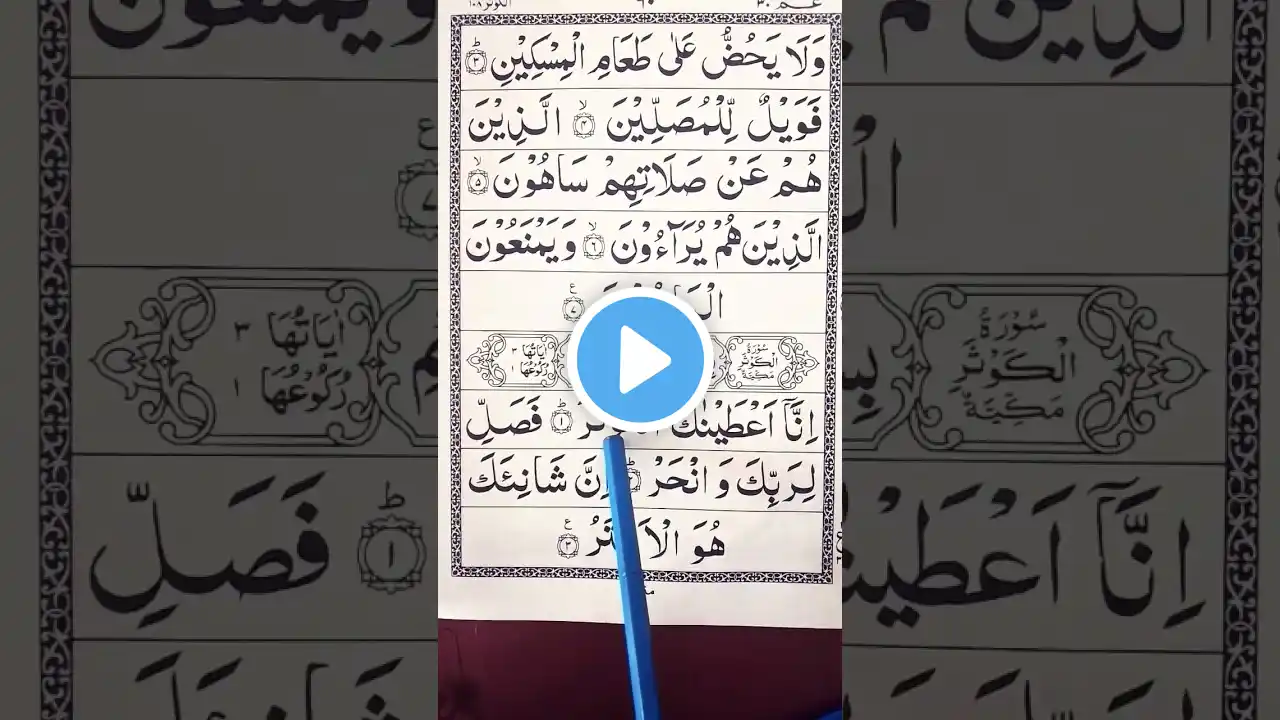 عـم ٣٠ ٦٠ الكوثر ١٠٨
وَلَا يَحُضُّ عَلٰى طَعَامِ الْمِسْكِيْنِ ؕ ٣
فَوَيْلٌ لِّلْمُصَلِّيْنَ ۙ ٤ الَّذِيْنَ
هُمْ عَنْ صَلَاتِهِمْ سَاهُوْنَ ۙ ٥
الَّذِيْنَ هُمْ يُرَآءُوْنَ ۙ ٦ وَيَمْنَعُوْنَ
ع ٧
سُوْرَةُ الْكَوْثَرِ مَكِّيَّةٌ
اٰيَاتُهَا ٣ رُكُوْعُهَا ١
اِنَّآ اَعْطَيْنٰكَ ؕ ١ فَصَلِّ
لِرَبِّكَ وَانْحَرْ ؕ ٢ اِنَّ شَانِئَكَ
هُوَ الْاَبْتَرُ ع ٣